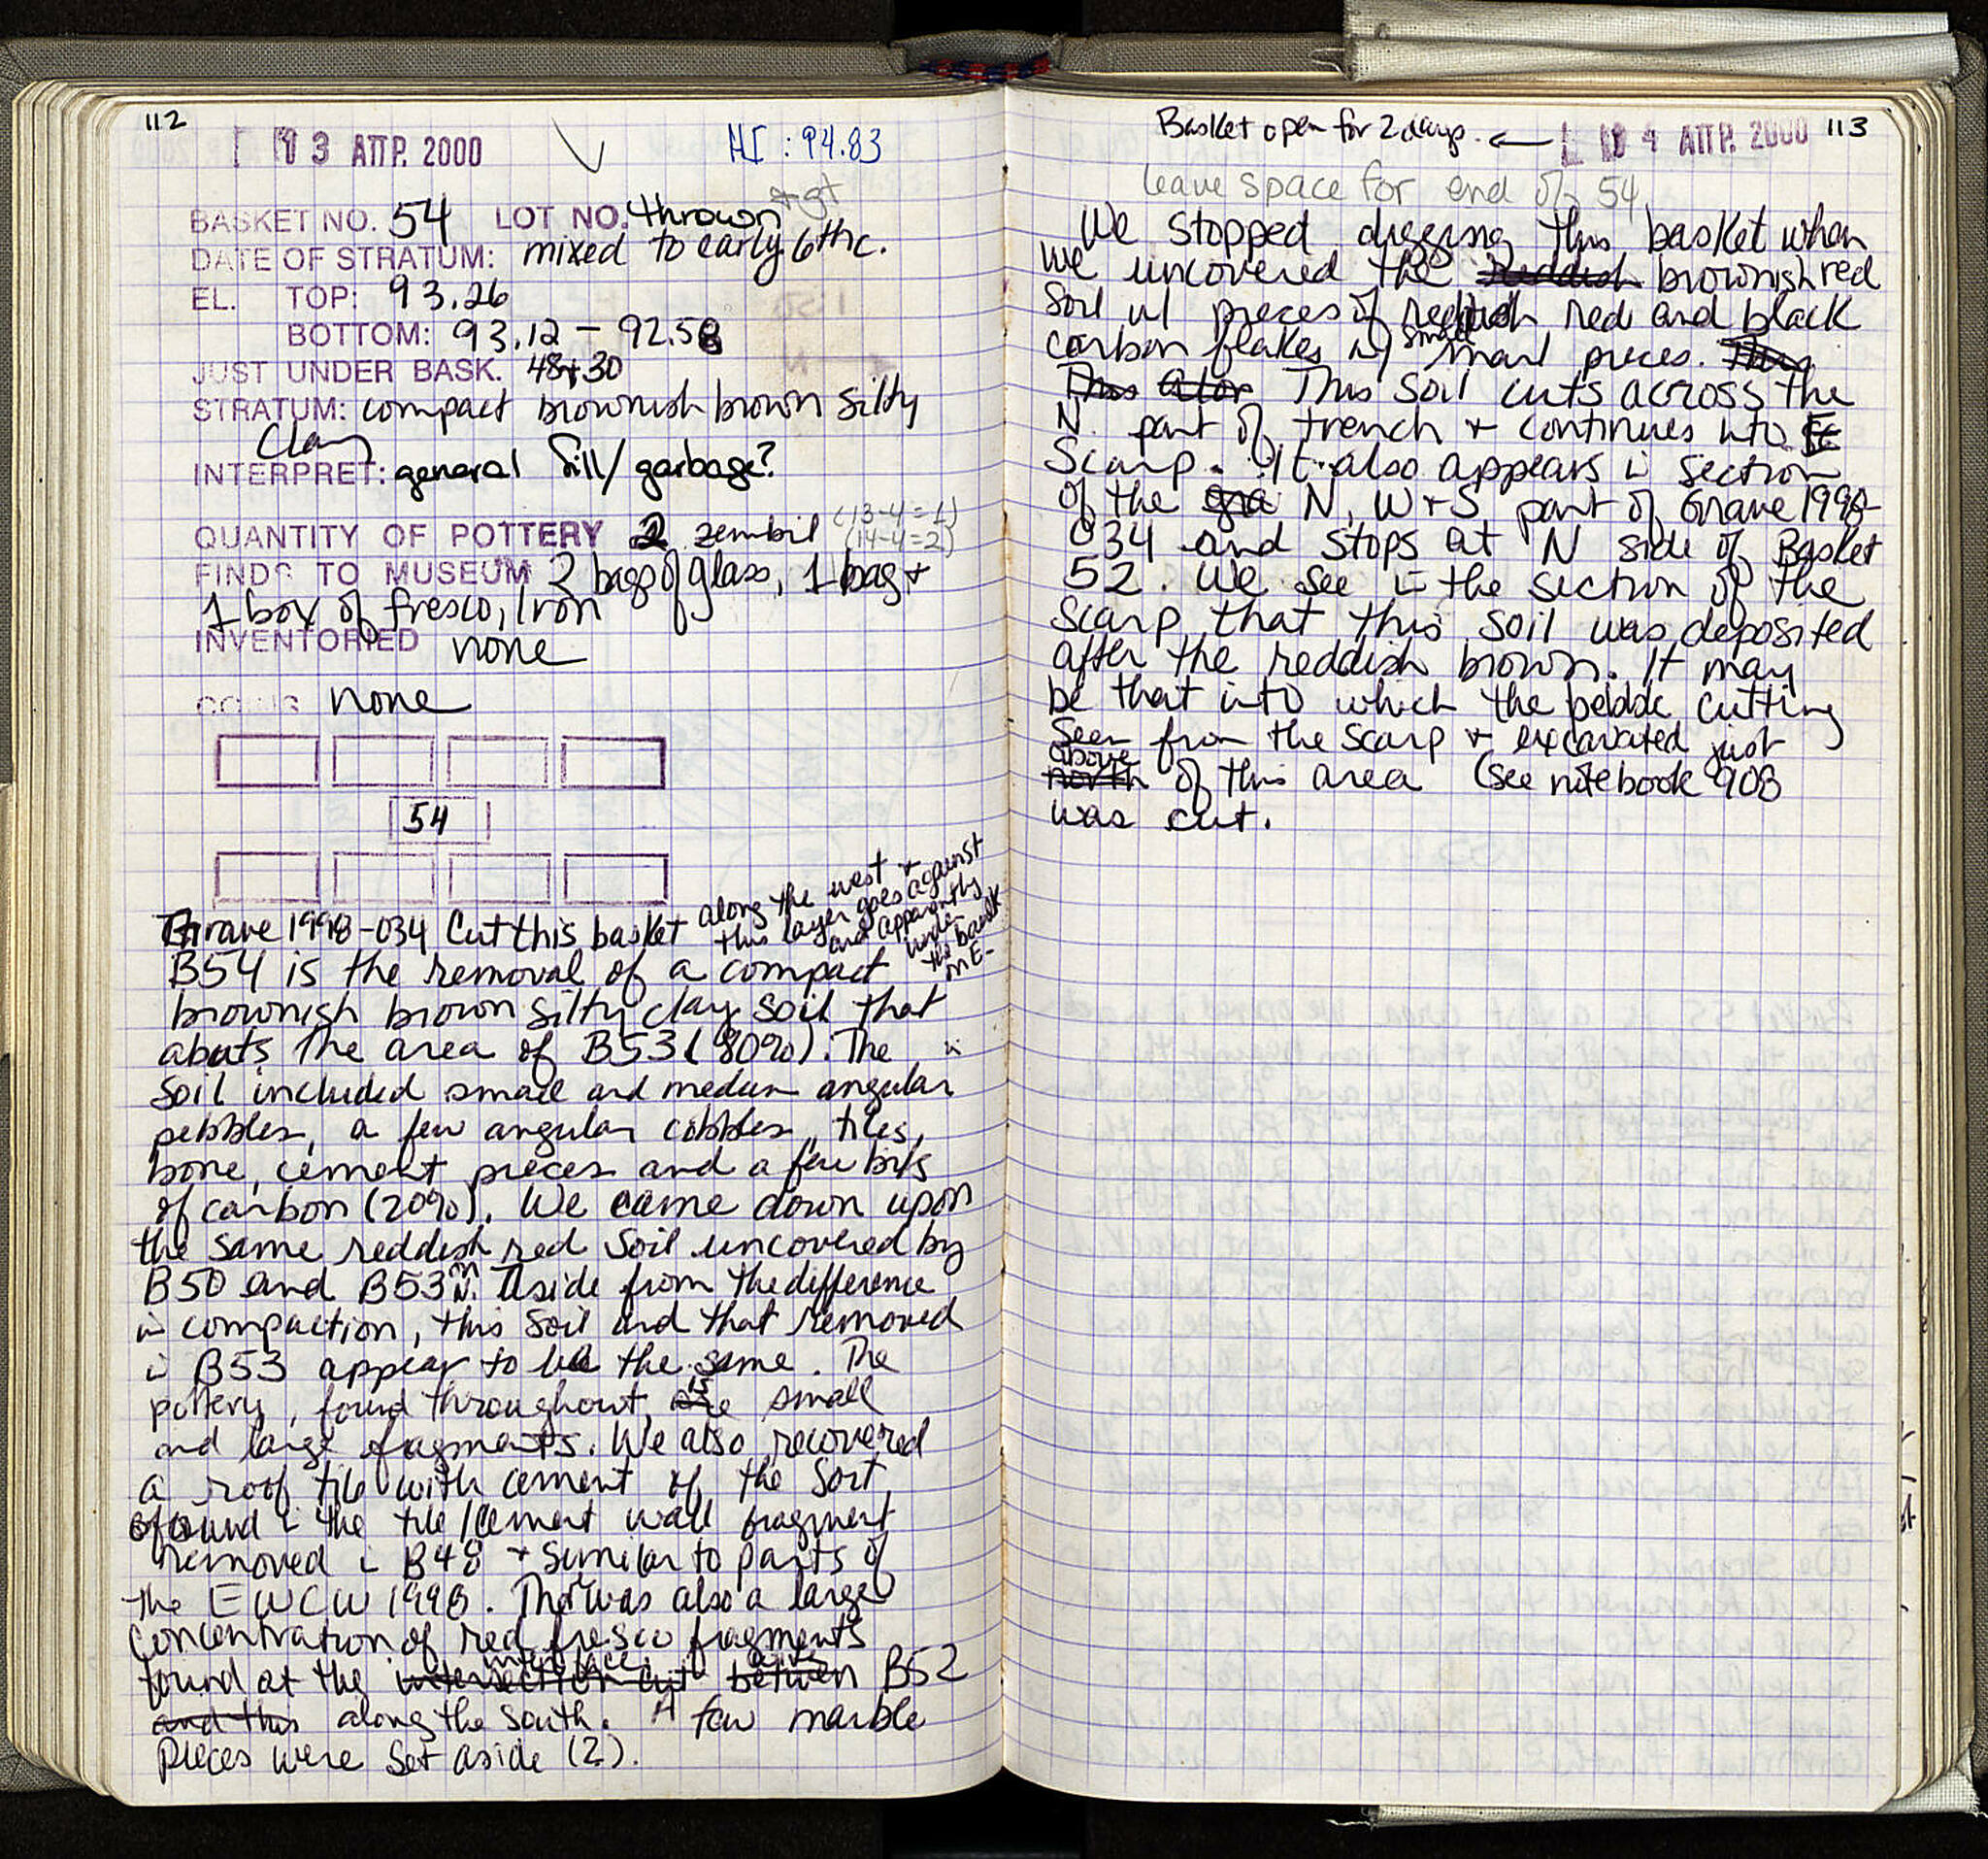 112
13 ΑΠΡ. 2000
HI : 94.83
BASKET NO. 54 LOT NO. thrown
DATE OF STRATUM: mixed to early 6thc.
EL. TOP: 93.26
BOTTOM: 93.12 – 92.58
JUST UNDER BASK. 48+30
STRATUM: compact brownish brown silty
clay
INTERPRET: general fill/garbage?
QUANTITY OF POTTERY 2 zembil (13-4=1)
(14-4=2)
FINDS TO MUSEUM 2 bags of glass, 1 bag +
1 box of fresco, Iron
INVENTORIED none
COINS none
54
Grave 1998-034 Cut this basket along the west +
this layer goes against
and apparently
under
the baulk
in E-
B54 is the removal of a compact
brownish brown silty clay soil that
abuts the area of B53 (80%). The
soil included small and medium angular
pebbles, a few angular cobbles, tiles,
bone, cement pieces and a few bits
of carbon (20%). We came down upon
the same reddish red soil uncovered by
B50 and B53 in N. Aside from the difference
in compaction, this soil and that removed
in B53 appear to be the same. The
pottery, found throughout, are is small
and large fragments. We also recovered
a roof tile with cement of the sort
found in the tile/cement wall fragment
removed in B48 + similar to parts of
the EWCW 1998. There was also a large
concentration of red fresco fragments
found at the intersection cut interface between B52
and this along the south. A few marble
pieces were set aside (2).
Basket open for 2 days. ← 14 ΑΠΡ. 2000 113
leave space for end of 54
We stopped digging this basket when
we uncovered the reddish brownish red
soil w/ pieces of reddish red and black
carbon flakes w/ small small pieces. This
This also This soil cuts across the
N. part of trench + continues into E
Scarp. It also appears in section
of the gra N, W + S part of Grave 1998-
034 and stops at N side of Basket
52. We see in the section of the
scarp that this soil was deposited
after the reddish brown. It may
be that into which the pebble cutting
seen from the scarp + excavated just
north above of this area (see notebook 908
was cut.